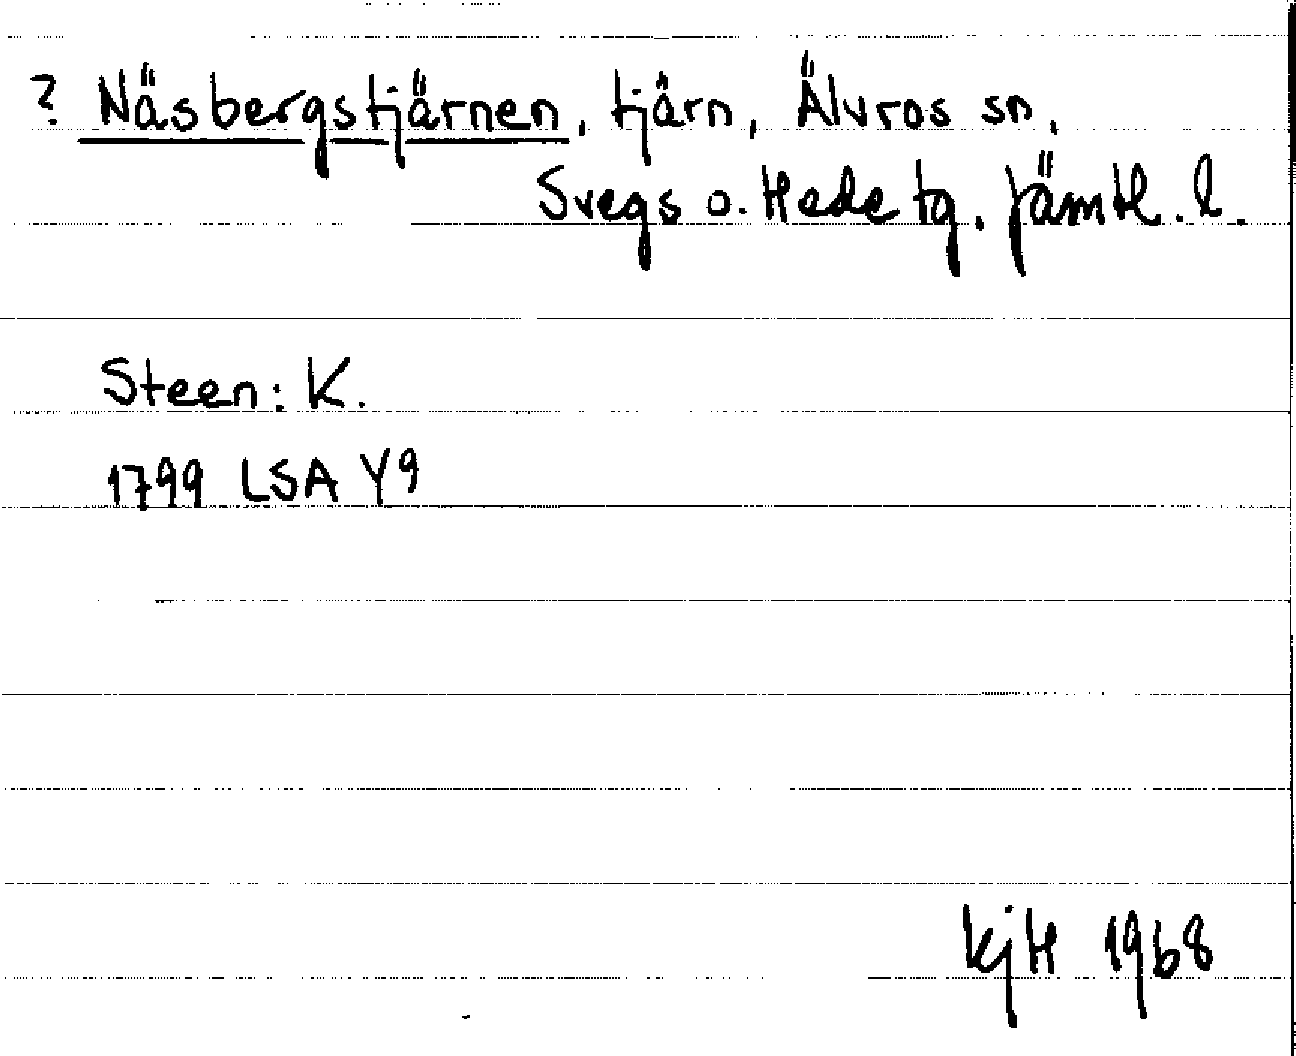 ? Näsbergstjärnen, tjärn, Älvros sn,
Svegs o. Hede tg. Jämtl. l.
Steen: K.
1799 LSA Y9
KjH 1968